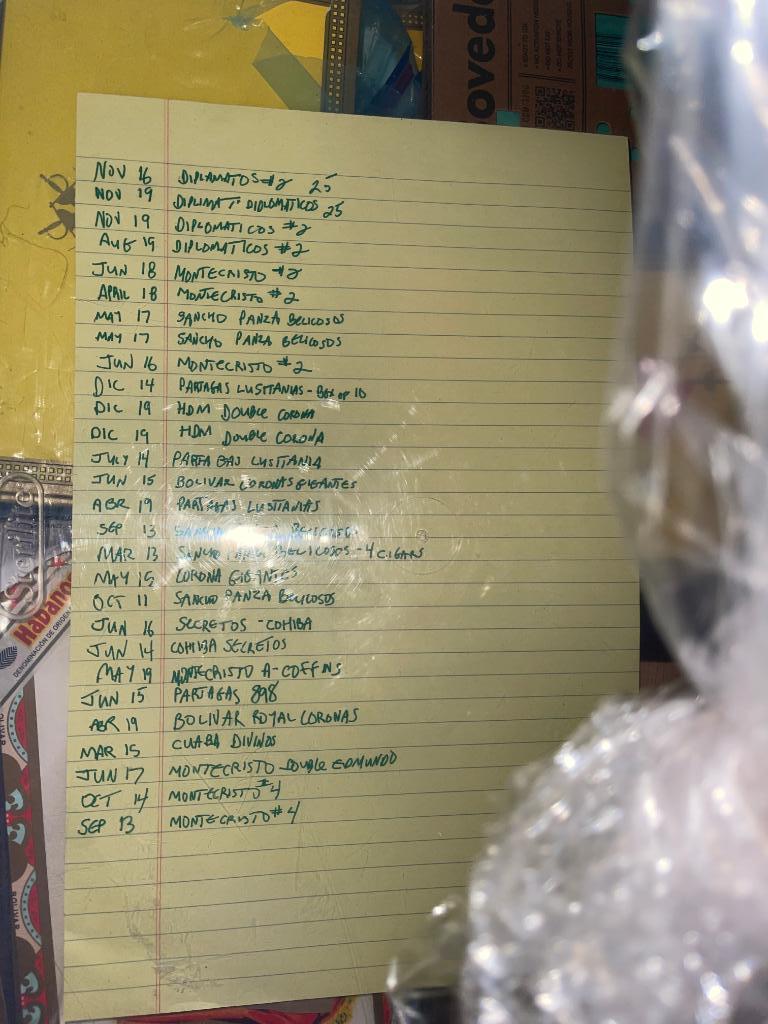 oved
NOV 16 DIPLAMATOS #2 25
NOV 19 DIPLIMAT DIOLOMATICOS 25
NOV 19 DIPLOMATICOS #2
AUG 19 DIPLOMATICOS #2
JUN 18 MONTECRISTO #2
APRIL 18 MONTECRISTO #2
MAY 17 SANCHO PANZA BELICOSOS
MAY 17 SANCHO PANZA BELICOSOS
JUN 16 MONTECRISTO #2
DIC 14 PARTAGAS LUSITANIAS - BOX OF 10
DIC 19 HDM DOUBLE CORONA
DIC 19 HDM DOUBLE CORONA
JULY 14 PARTAGAS LUSITANIA
JUN 15 BOLIVAR CORONAS GIGANTES
ABR 19 PARTAGAS LUSITANIAS
SEP 13
MAR 13 SANCHO PANZA BELICOSOS - 4 CIGARS
MAY 15 CORONA GIGANTES
OCT 11 SANCHO PANZA BELICOSOS
JUN 16 SECRETOS - COHIBA
JUN 14 COHIBA SECRETOS
MAY 19 MONTECRISTO A - COFFINS
JUN 15 PARTAGAS 898
ABR 19 BOLIVAR ROYAL CORONAS
MAR 15 CUABA DIVINOS
JUN 17 MONTECRISTO DOUBLE EDMUNDO
OCT 14 MONTECRISTO #4
SEP 13 MONTECRISTO #4
Sterilite
Habano
DENOMINACIÓN DE ORIGEN
BOLIVAR